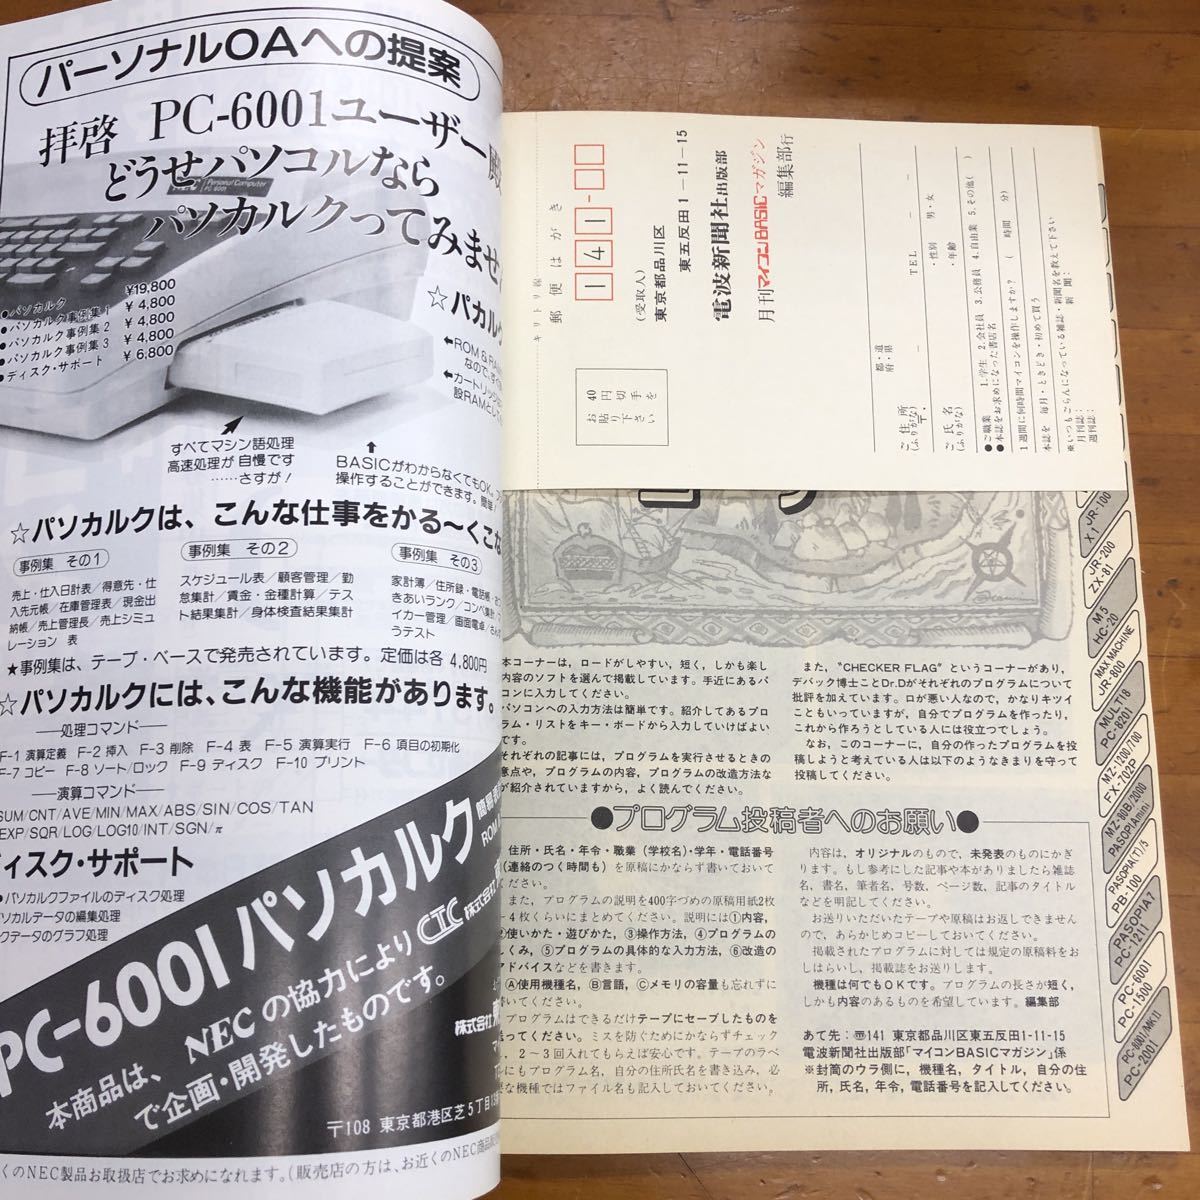 パーソナルOAへの提案
拝啓 PC-6001ユーザー殿
どうせパソコルなら
パソカルクってみませ
Personal Computer
PC 6001
●パソカルク ¥19,800
●パソカルク事例集1 ¥ 4,800
●パソカルク事例集2 ¥ 4,800
●パソカルク事例集3 ¥ 4,800
●ディスク・サポート ¥ 6,800
☆パカル
←ROM&RA
なので、す
←カートリッジ
設RAMとし
すべてマシン語処理
高速処理が 自慢です
……さすが!
BASICがわからなくてもOK。
操作することができます。簡単
☆パソカルクは、こんな仕事をかる〜くこな
事例集 その1
売上・仕入日計表/得意先・仕
入先元帳/在庫管理表/現金出
納帳/売上管理長/売上シミュ
レーション 表
事例集 その2
スケジュール表/顧客管理/勤
怠集計/賃金・金種計算/テス
ト結果集計/身体検査結果集計
事例集 その3
家計簿/住所録・電話帳・お
きあいランク/コンペ集計
イカー管理/画面電卓/さん
うテスト
★事例集は、テープ・ベースで発売されています。定価は各 4,800円
☆パソカルクには、こんな機能があります。
──処理コマンド──
F-1 演算定義 F-2 挿入 F-3 削除 F-4 表 F-5 演算実行 F-6 項目の初期化
F-7 コピー F-8 ソート/ロック F-9 ディスク F-10 プリント
──演算コマンド──
SUM/CNT/AVE/MIN/MAX/ABS/SIN/COS/TAN
EXP/SQR/LOG/LOG10/INT/SGN/π
ディスク・サポート
●パソカルクファイルのディスク処理
パソカルデータの編集処理
クデータのグラフ処理
PC-6001パソカルク
簡易言
ROM
本商品は、NECの協力により
で企画・開発したものです。
CTC 株式会社
株式会社
〒108 東京都港区芝5丁目
くのNEC製品お取扱店でお求めになれます。(販売店の方は、お近くのNEC商品
キリトリ線
郵便はがき
141-
(受取人)
東京都品川区
東五反田1-11-15
電波新聞社出版部
月刊マイコンBASICマガジン
編集部行
40円切手を
お貼り下さい
ご住所
(ふりがな)
〒
都・道
府・県
TEL － －
ご氏名
(ふりがな)
・性別 男・女
・年齢
●ご職業 1.学生 2.会社員 3.公務員 4.自由業 5.その他( )
●本誌をお求めになった書店名
1週間に何時間マイコンを操作しますか? ( 時間 分)
本誌を 毎月・ときどき・初めて買う
※いつもごらんになっている雑誌・新聞名を教えて下さい
月刊誌: 新聞:
週刊誌:
本コーナーは，ロードがしやすい，短く，しかも楽し
内容のソフトを選んで掲載しています。手近にあるパ
コンに入力してください。
パソコンへの入力方法は簡単です。紹介してあるプロ
ラム・リストをキー・ボードから入力していけばよい
です。
それぞれの記事には，プログラムを実行させるときの
意点や，プログラムの内容，プログラムの改造方法な
が紹介されていますから，よく読んでください。
また，“CHECKER FLAG”というコーナーがあり，
デバック博士ことDr.Dがそれぞれのプログラムについて
批評を加えています。口が悪い人なので，かなりキツイ
こともいっていますが，自分でプログラムを作ったり，
これから作ろうとしている人には役立つでしょう。
なお，このコーナーに，自分の作ったプログラムを投
稿しようと考えている人は以下のようなきまりを守って
投稿してください。
●プログラム投稿者へのお願い●
住所・氏名・年令・職業(学校名)・学年・電話番号
(連絡のつく時間も)を原稿にかならず書いておいて
ください。
また，プログラムの説明を400字づめの原稿用紙2枚
－4枚くらいにまとめてください。説明には①内容，
②使いかた・遊びかた，③操作方法，④プログラムの
しくみ，⑤プログラムの具体的な入力方法，⑥改造の
アドバイスなどを書きます。
Ⓐ使用機種名，Ⓑ言語，Ⓒメモリの容量も忘れずに
書いてください。
プログラムはできるだけテープにセーブしたものを
送ってください。ミスを防ぐためにかならずチェック
，2－3回入れてもらえば安心です。テープのラベ
ルにもプログラム名，自分の住所氏名を書き込み，必
要な機種ではファイル名も記入しておいてください。
内容は，オリジナルのもので，未発表のものにかぎ
ります。もし参考にした記事や本がありましたら雑誌
名，書名，筆者名，号数，ページ数，記事のタイトル
などを明記してください。
お送りいただいたテープや原稿はお返しできません
ので，あらかじめコピーしておいてください。
掲載されたプログラムに対しては規定の原稿料をお
しはらいし，掲載誌をお送りします。
機種は何でもOKです。プログラムの長さが短く，
しかも内容のあるものを希望しています。編集部
あて先：〠141 東京都品川区東五反田1-11-15
電波新聞社出版部「マイコンBASICマガジン」係
※封筒のウラ側に，機種名，タイトル，自分の住
所，氏名，年令，電話番号を記入してください。
JR-100
X1
JR-200
ZX-81
M5
HC-20
MAX MACHINE
JR-800
MULTI8
PC-8201
MZ-1200/700
FX-702P
MZ-80B/2000
PASOPIAmini
PASOPIA(T)/5
PB-100
PASOPIA7
PC-1211
PC-6001
PC-1500
PC-8001/MKII
PC-2001